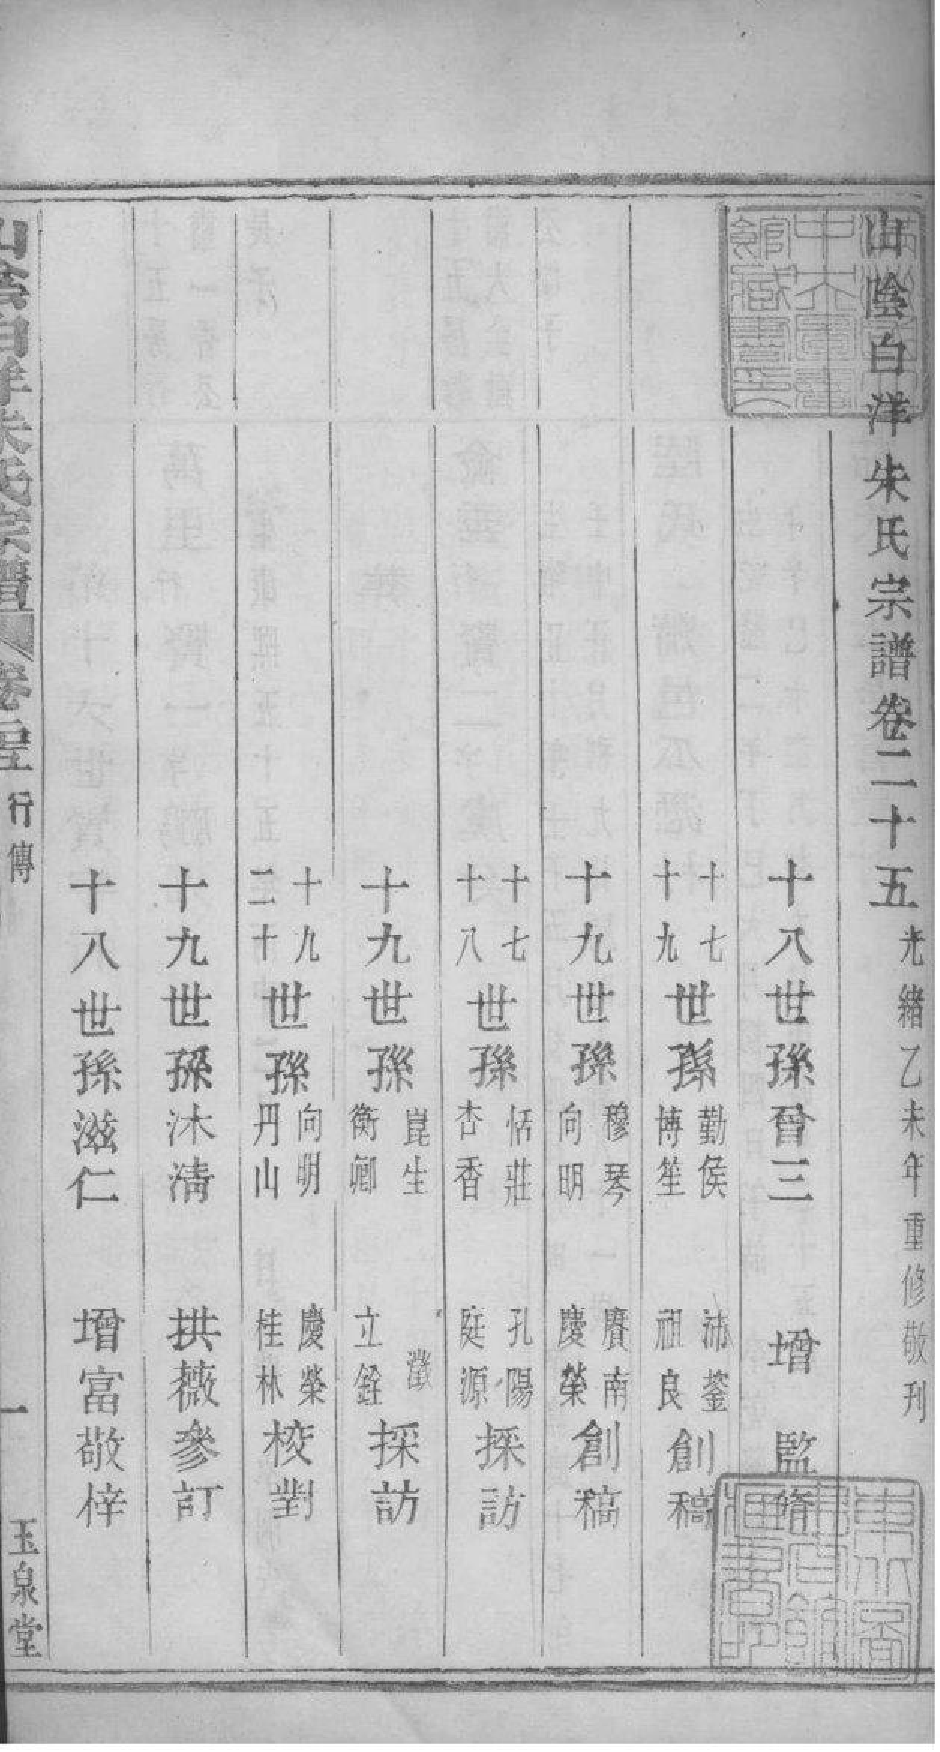 山陰白洋朱氏宗譜卷二十五 光緒乙未年重修敬刊
十八世孫晉三 增 監脩
十七十九世孫勤侯博笙 沛鋆祖良創稿
十九世孫穆琴向明 賡南慶榮創稿
十七十八世孫恬莊杏香 孔陽庭源採訪
十九世孫崑生衡卿 瀓立銓採訪
十九二十世孫向明丹山 慶榮桂林校對
十九世孫沐清 拱薇參訂
十八世孫滋仁 增富敬梓
山陰白洋朱氏宗譜 卷二十五 行傳 一 玉泉堂